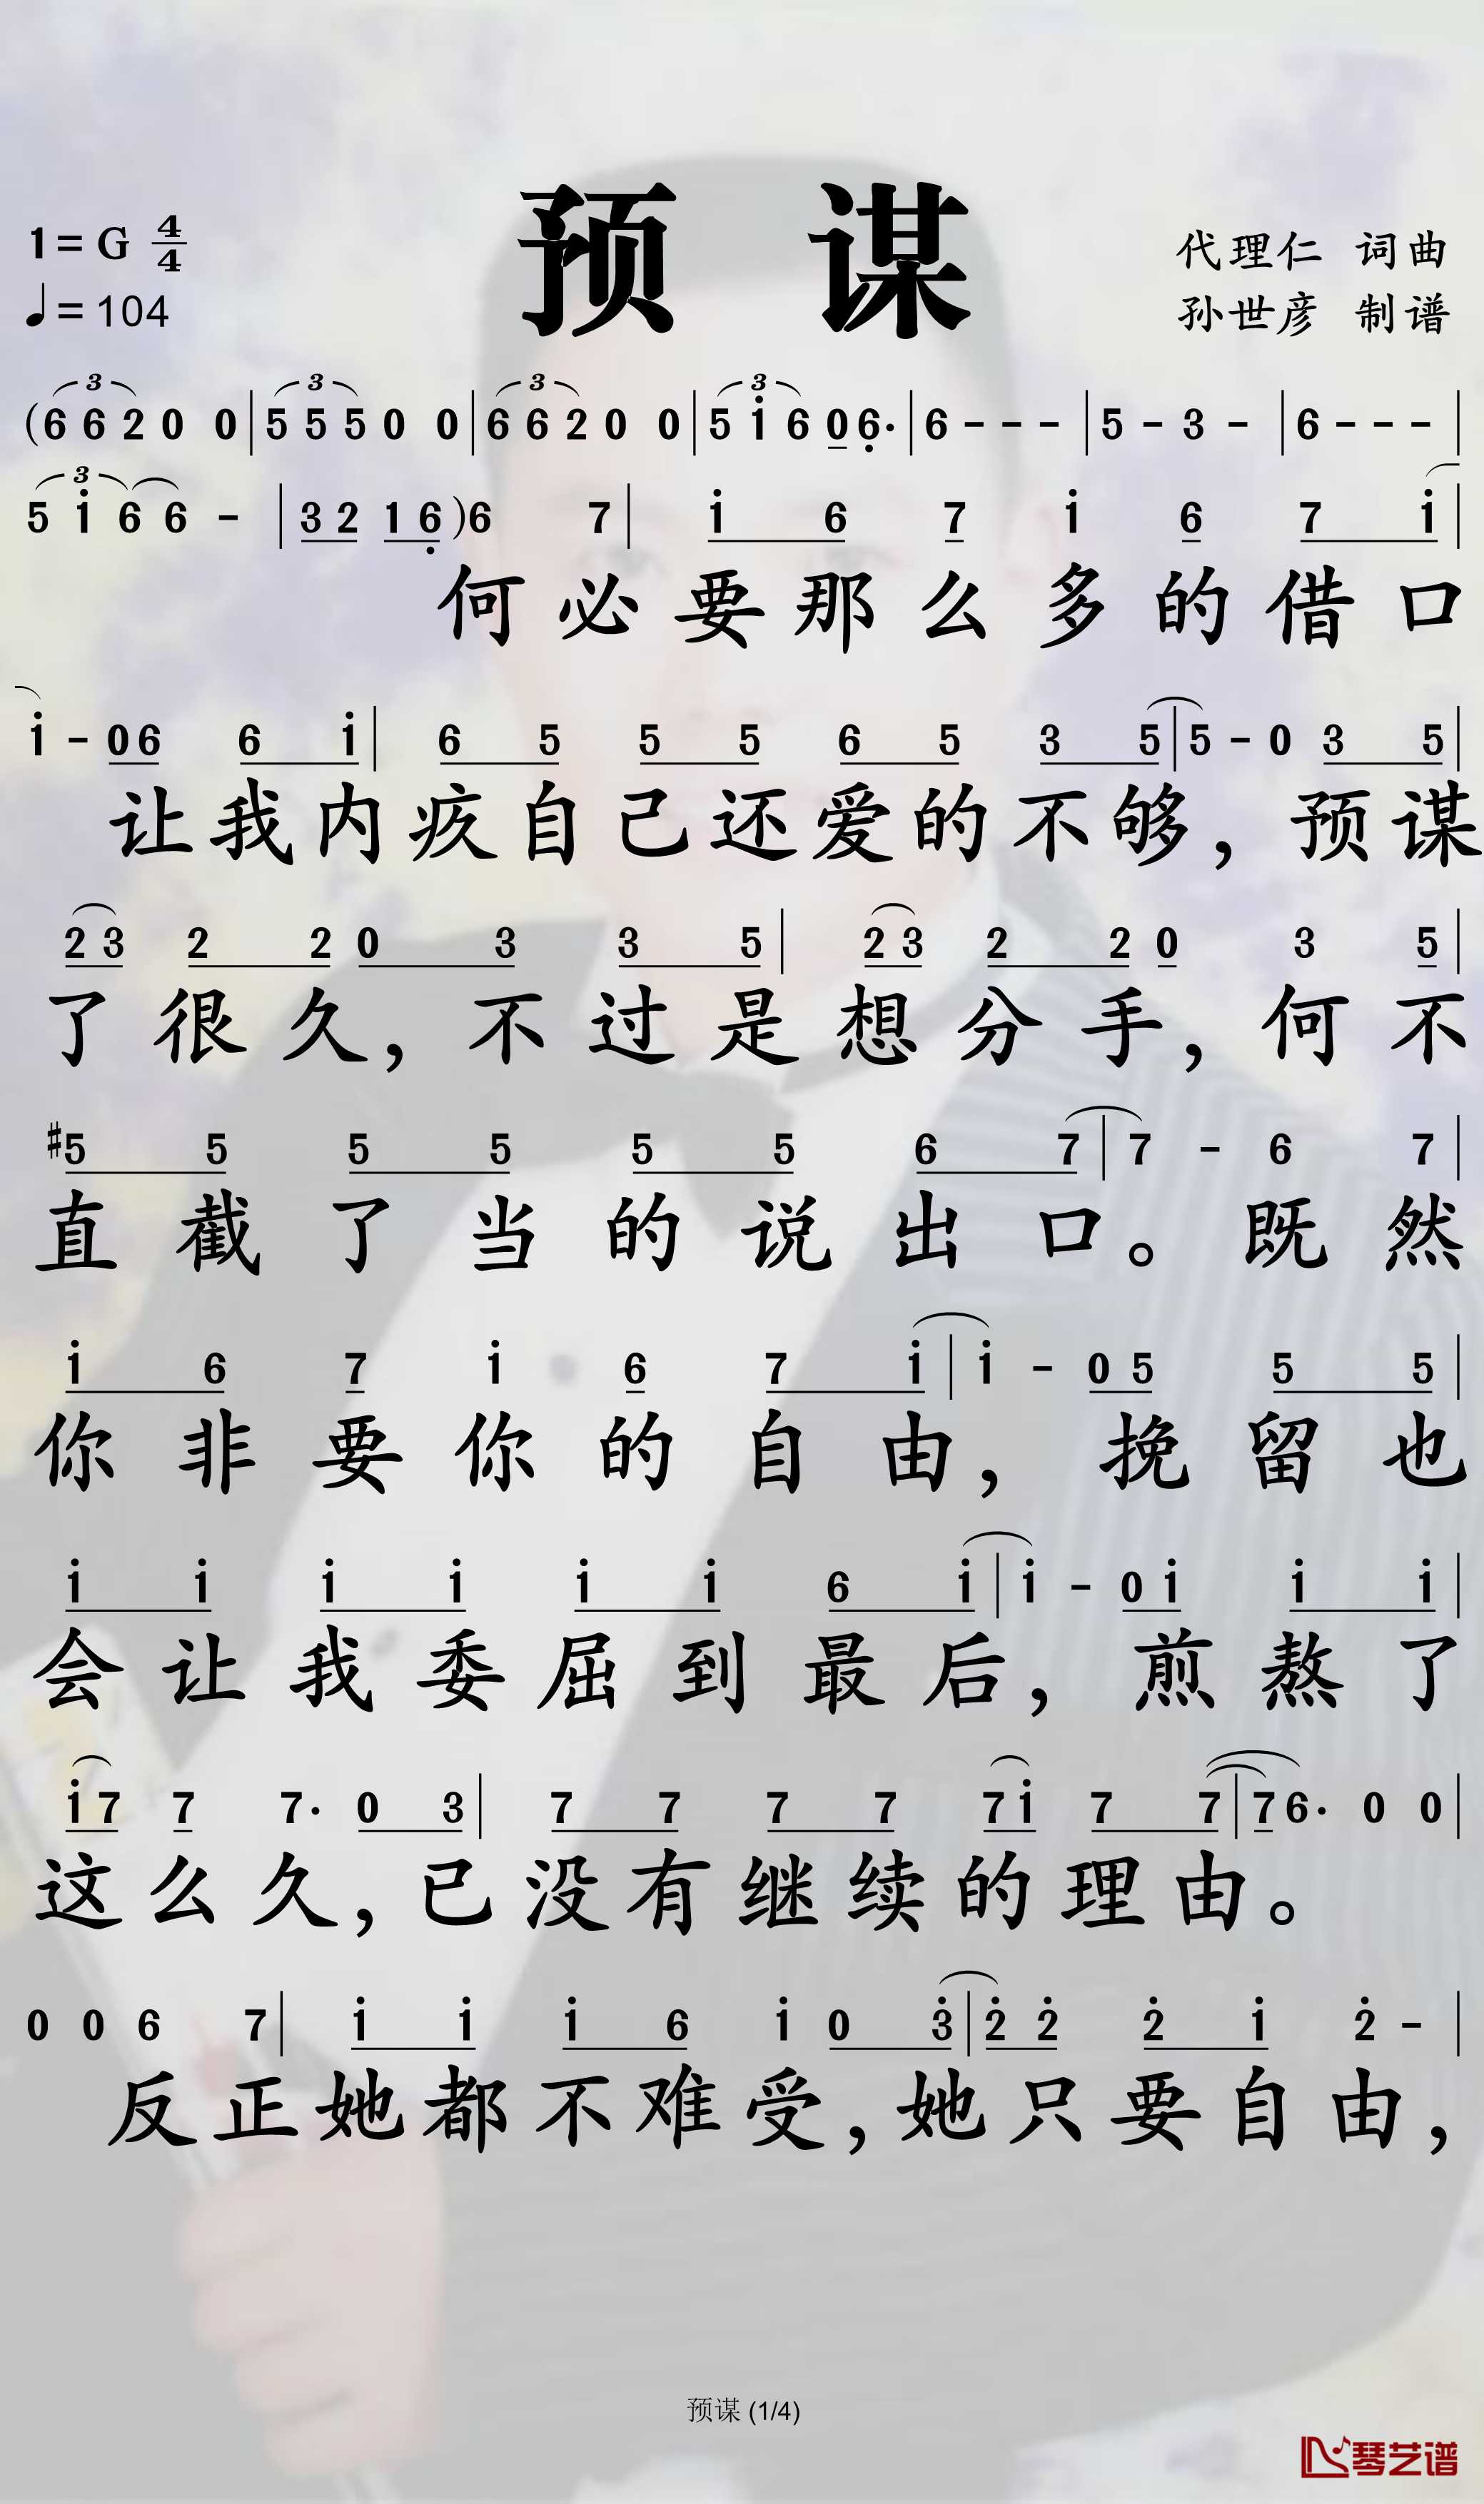 预 谋
1=G 4/4
♩=104
代理仁 词曲
孙世彦 制谱
(6 6 2 0 0 | 5 5 5 0 0 | 6 6 2 0 0 | 5 i 6 0 6. | 6 - - - | 5 - 3 - | 6 - - - |
5 i 6 6 - | 3 2 1 6 ) 6 7 | i 6 7 i 6 7 i |
何必要那么多的借口
i - 0 6 6 i | 6 5 5 5 6 5 3 5 | 5 - 0 3 5 |
让我内疚自己还爱的不够，预谋
2 3 2 2 0 3 3 5 | 2 3 2 2 0 3 5 |
了很久，不过是想分手，何不
#5 5 5 5 5 5 6 7 | 7 - 6 7 |
直截了当的说出口。既然
i 6 7 i 6 7 i | i - 0 5 5 5 |
你非要你的自由，挽留也
i i i i i i 6 i | i - 0 i i i |
会让我委屈到最后，煎熬了
i 7 7 7. 0 3 | 7 7 7 7 7 i 7 7 | 7 6. 0 0 |
这么久，已没有继续的理由。
0 0 6 7 | i i i 6 i 0 3 | 2 2 2 i 2 - |
反正她都不难受，她只要自由，
预谋 (1/4)
琴艺谱